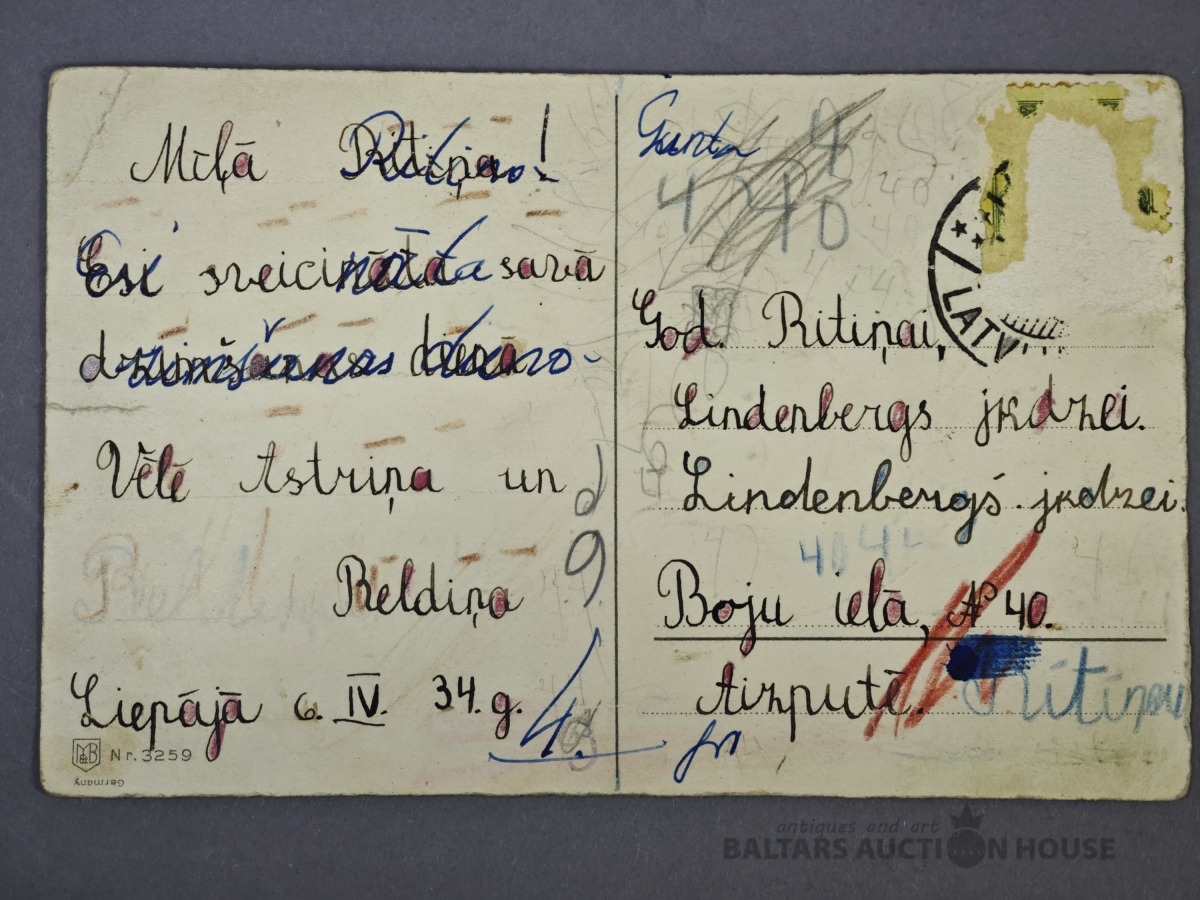 Mīļā Ritiņa!
Esi sveicināta savā
dzimšanas dienā
Vēlē Astriņa un
Reldiņa
Liepājā 6. IV. 34. g.
4.
Nr. 3259
Germany
Gunta
4
4 40
LATV
God. Ritiņai,
Lindenbergs jkdzei.
Lindenbergs jkdzei.
40 42
Boju ielā, № 40.
Aizputē.
Ritiņai
antiques and art
BALTARS AUCTION HOUSE